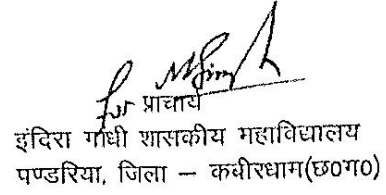 For प्राचार्य
इंदिरा गांधी शासकीय महाविद्यालय
पण्डरिया, जिला – कबीरधाम(छ०ग०)